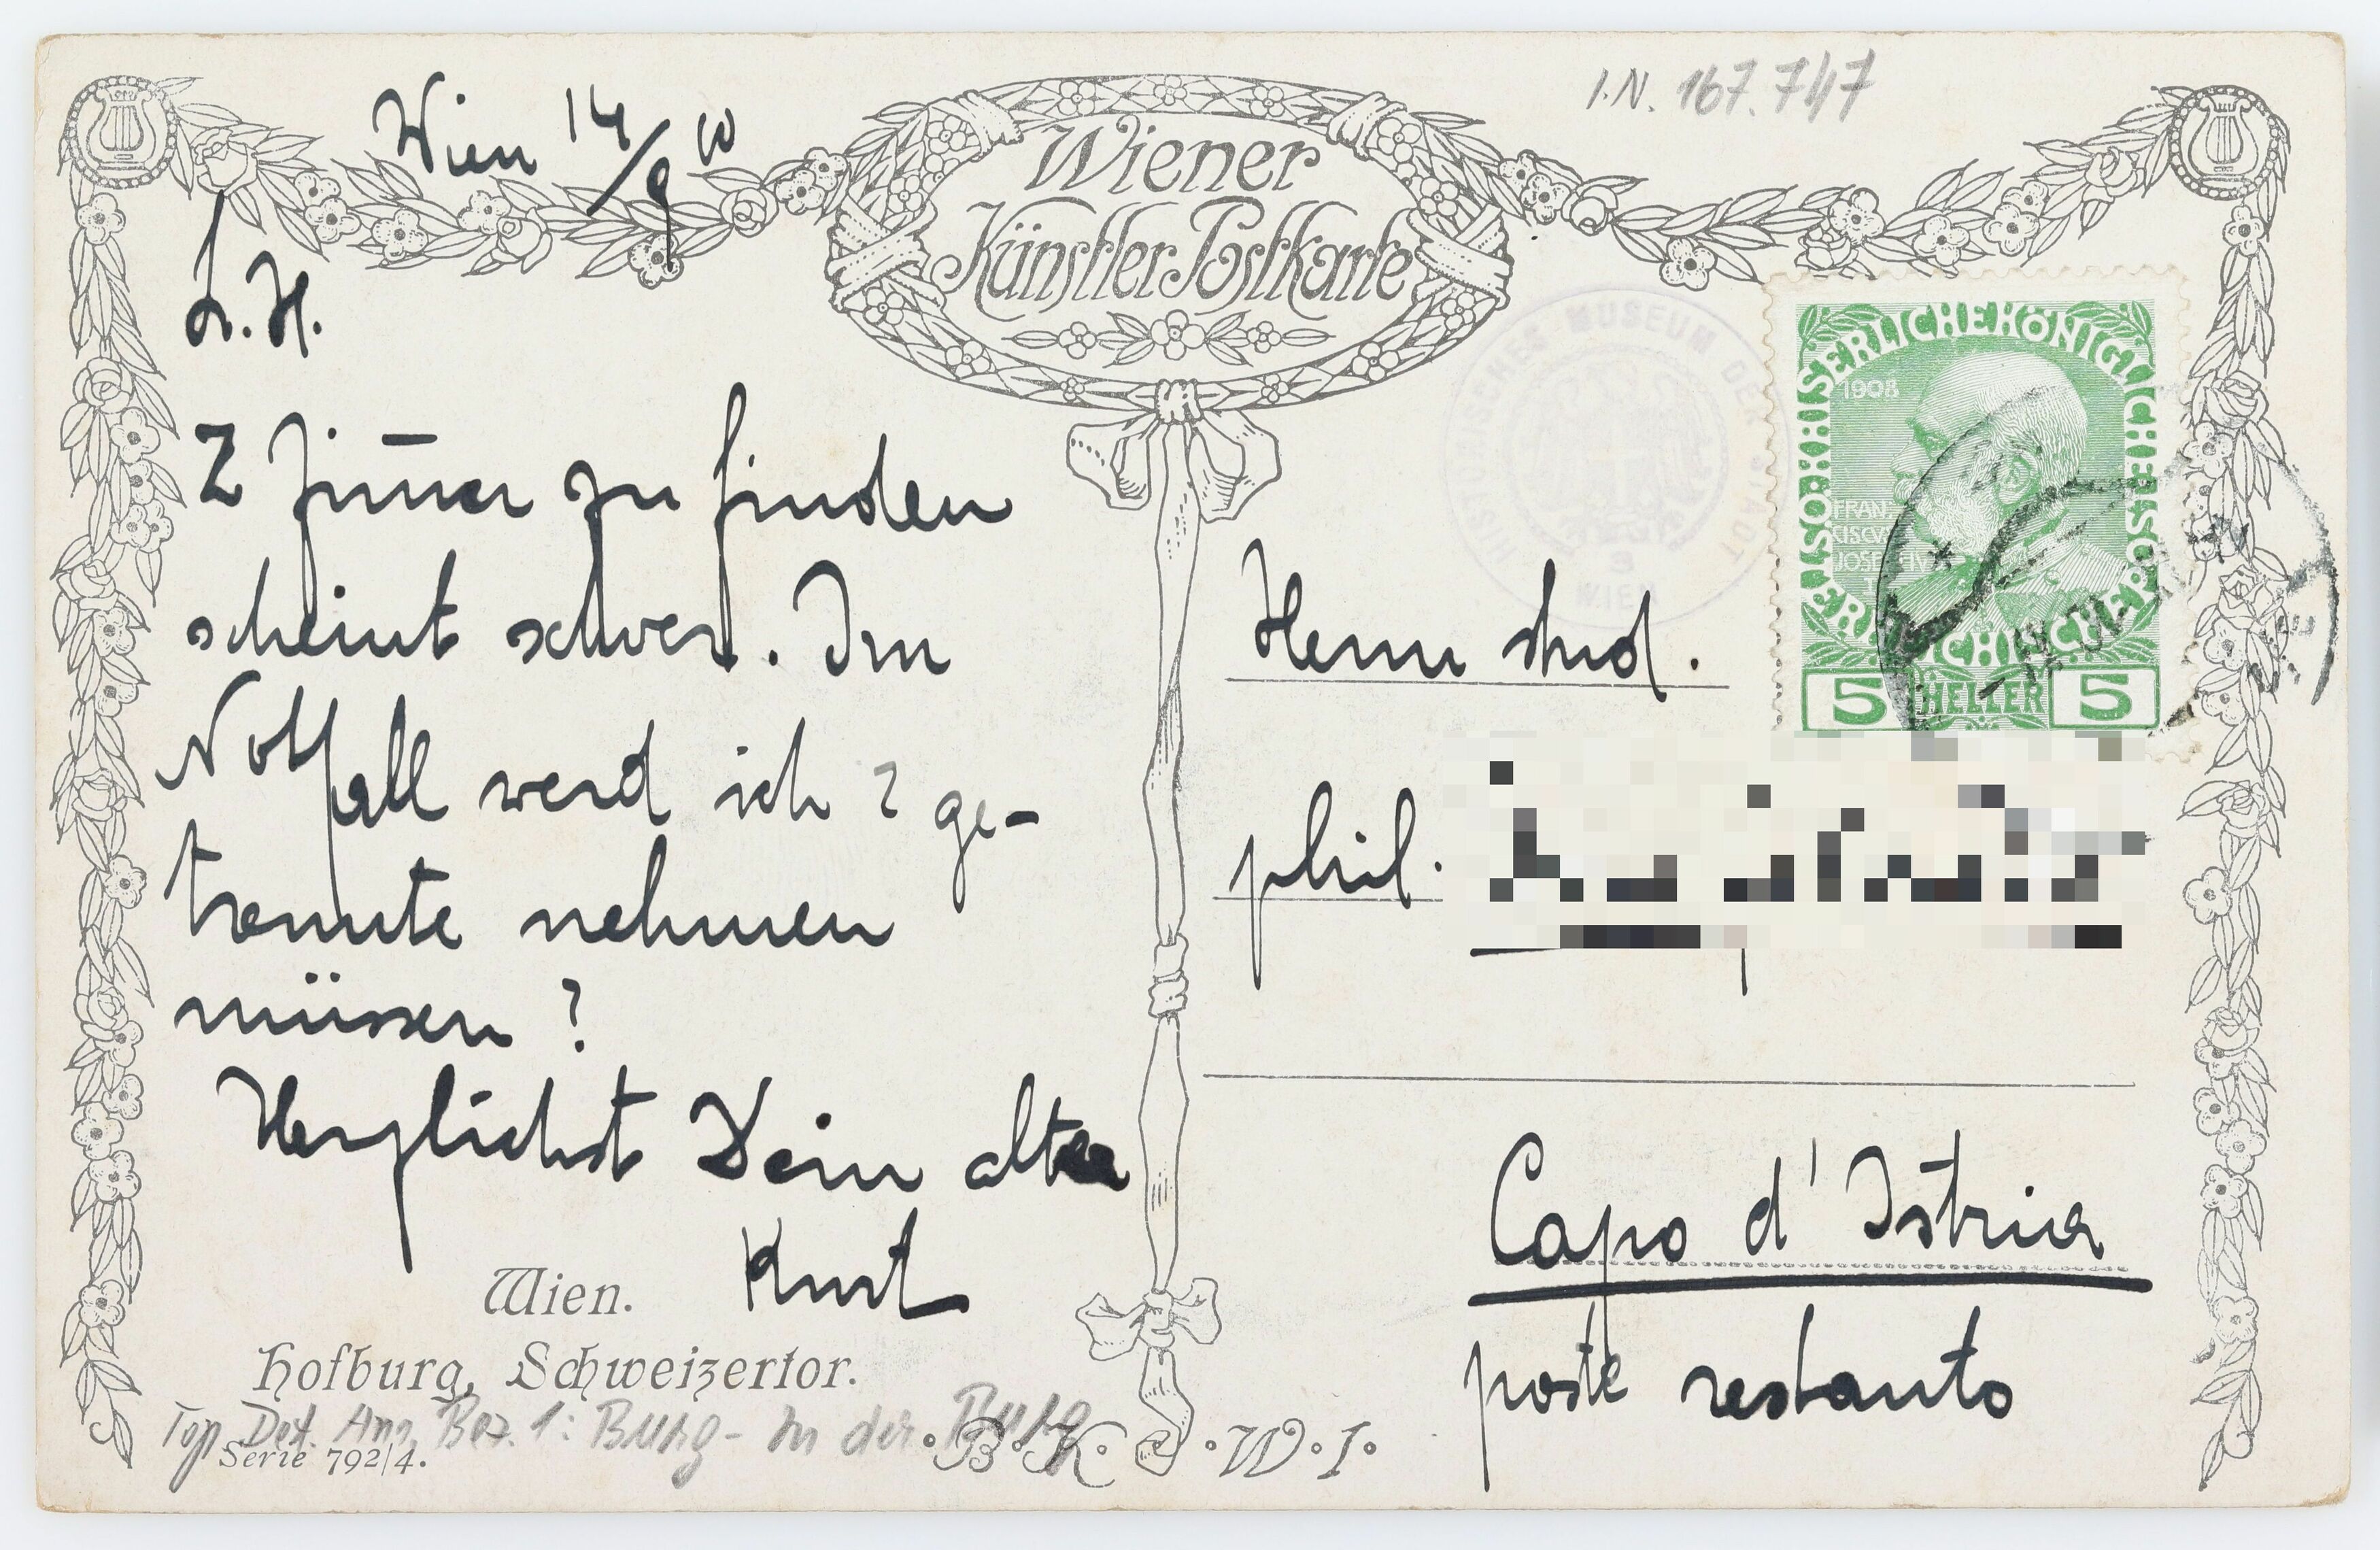 I.N. 167.747
Wien 14/9 10
Wiener
Künstler Postkarte
L. H.
2 Zim̅er zu finden
scheint schwer. Im
Notfall werd ich 2 ge-
trennte nehmen
müssen?
Herzlichst Dein alter
Kurt
Wien.
Hofburg, Schweizertor.
Top. Det. Ans. Bez. 1: Burg - In der Burg
Serie 792/4.
B. K. W. I.
HISTORISCHES MUSEUM DER STADT WIEN
KAISERLICHE KÖNIGLICHE ÖSTERREICHISCHE
1908
FRAN
CISCVS
JOSEF I
5 HELLER 5
Herrn stud.
phil.
Capo d'Istria
poste restante